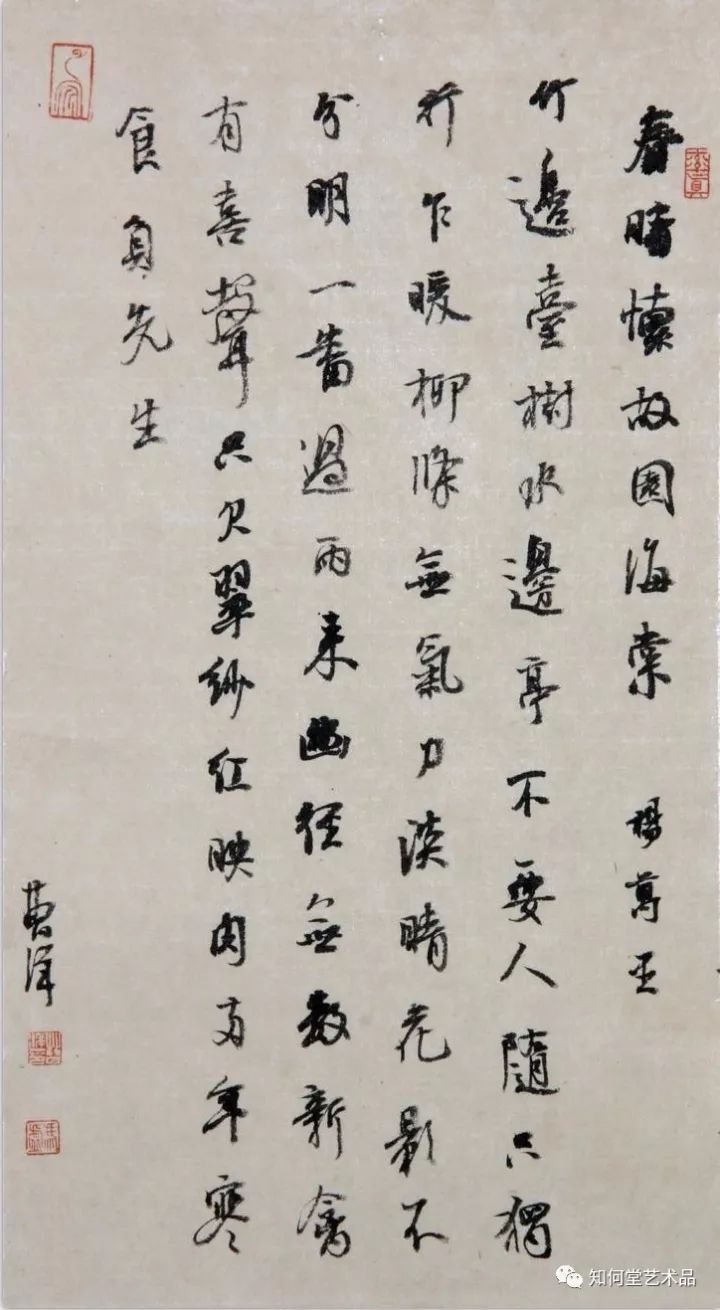 春晴懷故園海棠 楊萬里
竹邊臺樹水邊亭不要人隨只獨
行乍暖柳條無氣力淡晴花影不
分明一番過雨来幽徑無數新禽
有喜聲只欠翠紗紅映肉兩年寒
食負先生
知何堂艺术品